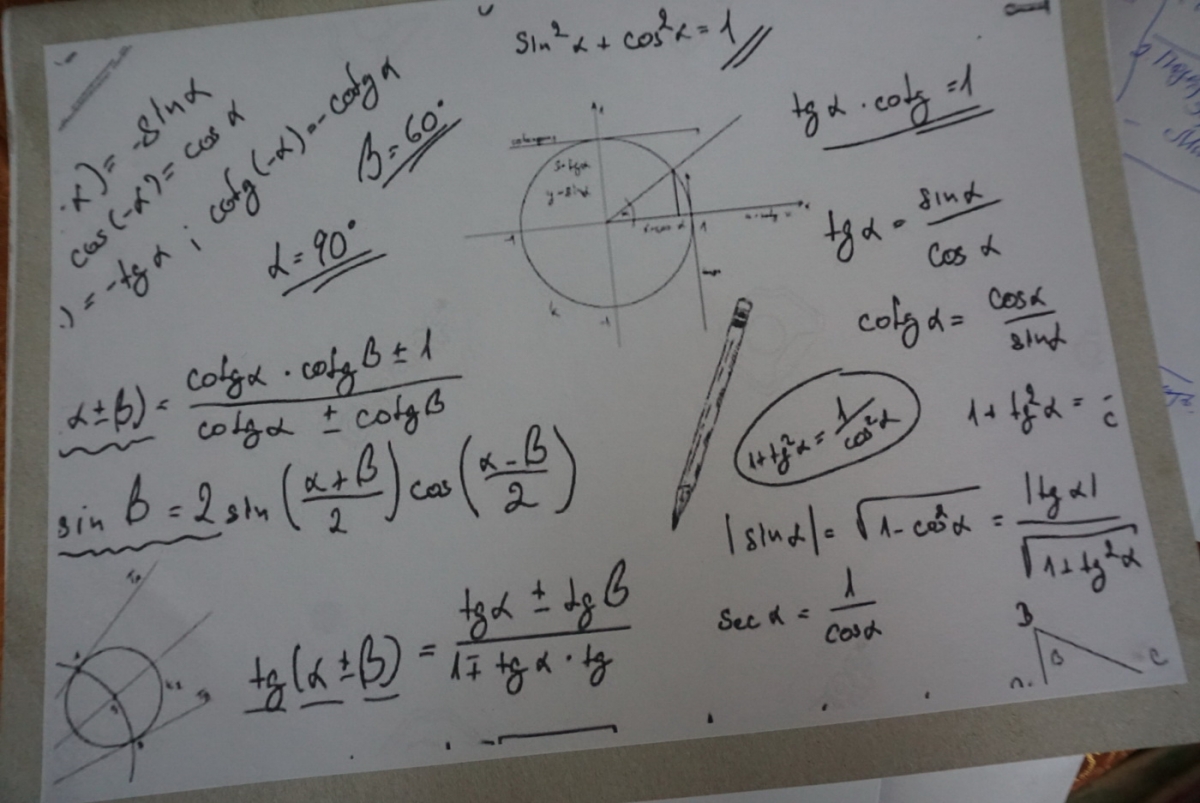 sin²α + cos²α = 1
α) = -sinα
cos(-α) = cos α
) = -tgα ; cotg(-α) = -cotgα
β = 60°
α = 90°
tgα · cotg = 1
tgα = sinα / cos α
cotgα = cosα / sinα
y = sinα
-1
1
-1
k
1 + tg²α = 1/cos²α
1 + tg²α =
α ± β) = (cotgα · cotgβ ± 1) / (cotgα ± cotgβ)
sin β = 2 sin ((α + β)/2) cos ((α - β)/2)
|sinα| = √(1 - cos²α) = |tgα| / √(1 + tg²α)
sec α = 1/cosα
tg(α ± β) = (tgα ± tgβ) / (1 ∓ tgα · tg
B
C